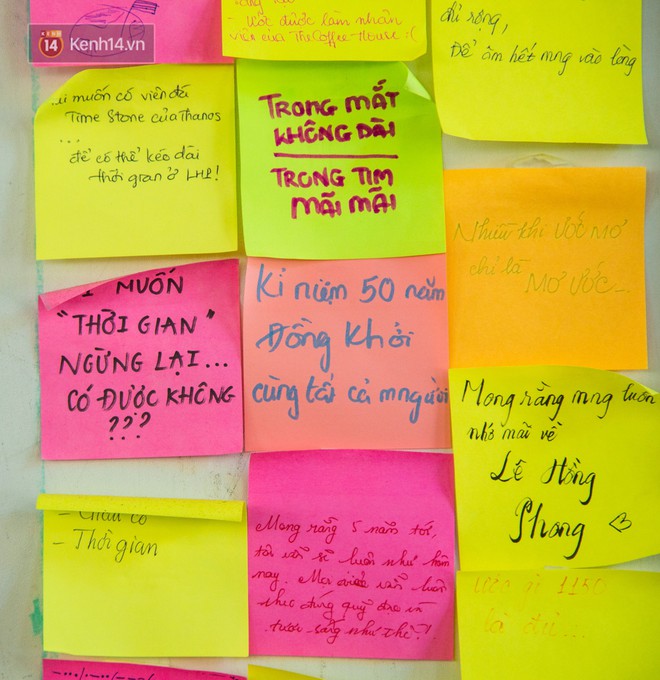 14 Kenh14.vn
- Ướt được làm nhân
viên của The Coffee House :(
chỉ rộng,
Để ôm hết mng vào lòng
muốn có viên đá
Time Stone của Thanos
...
để có thể kéo dài
thời gian ở LHP!
TRONG MẮT
KHÔNG DÀI
TRONG TIM
MÃI MÃI
Nhiều khi ƯỚC MƠ
chỉ là
MƠ ƯỚC...
MUỐN
"THỜI GIAN"
NGỪNG LẠI...
CÓ ĐƯỢC KHÔNG
???
Kỉ niệm 50 năm
Đồng Khởi
cùng tất cả mngười
Mong rằng mng luôn
nhớ mãi về
Lê Hồng
Phong
- Thời gian
Mong rằng 5 năm tới,
tôi vẫn sẽ luôn như hôm
nay. Mọi điều vẫn luôn
theo đúng quỹ đạo và
tươi sáng như thế?!
Ước gì 1150
là đủ...